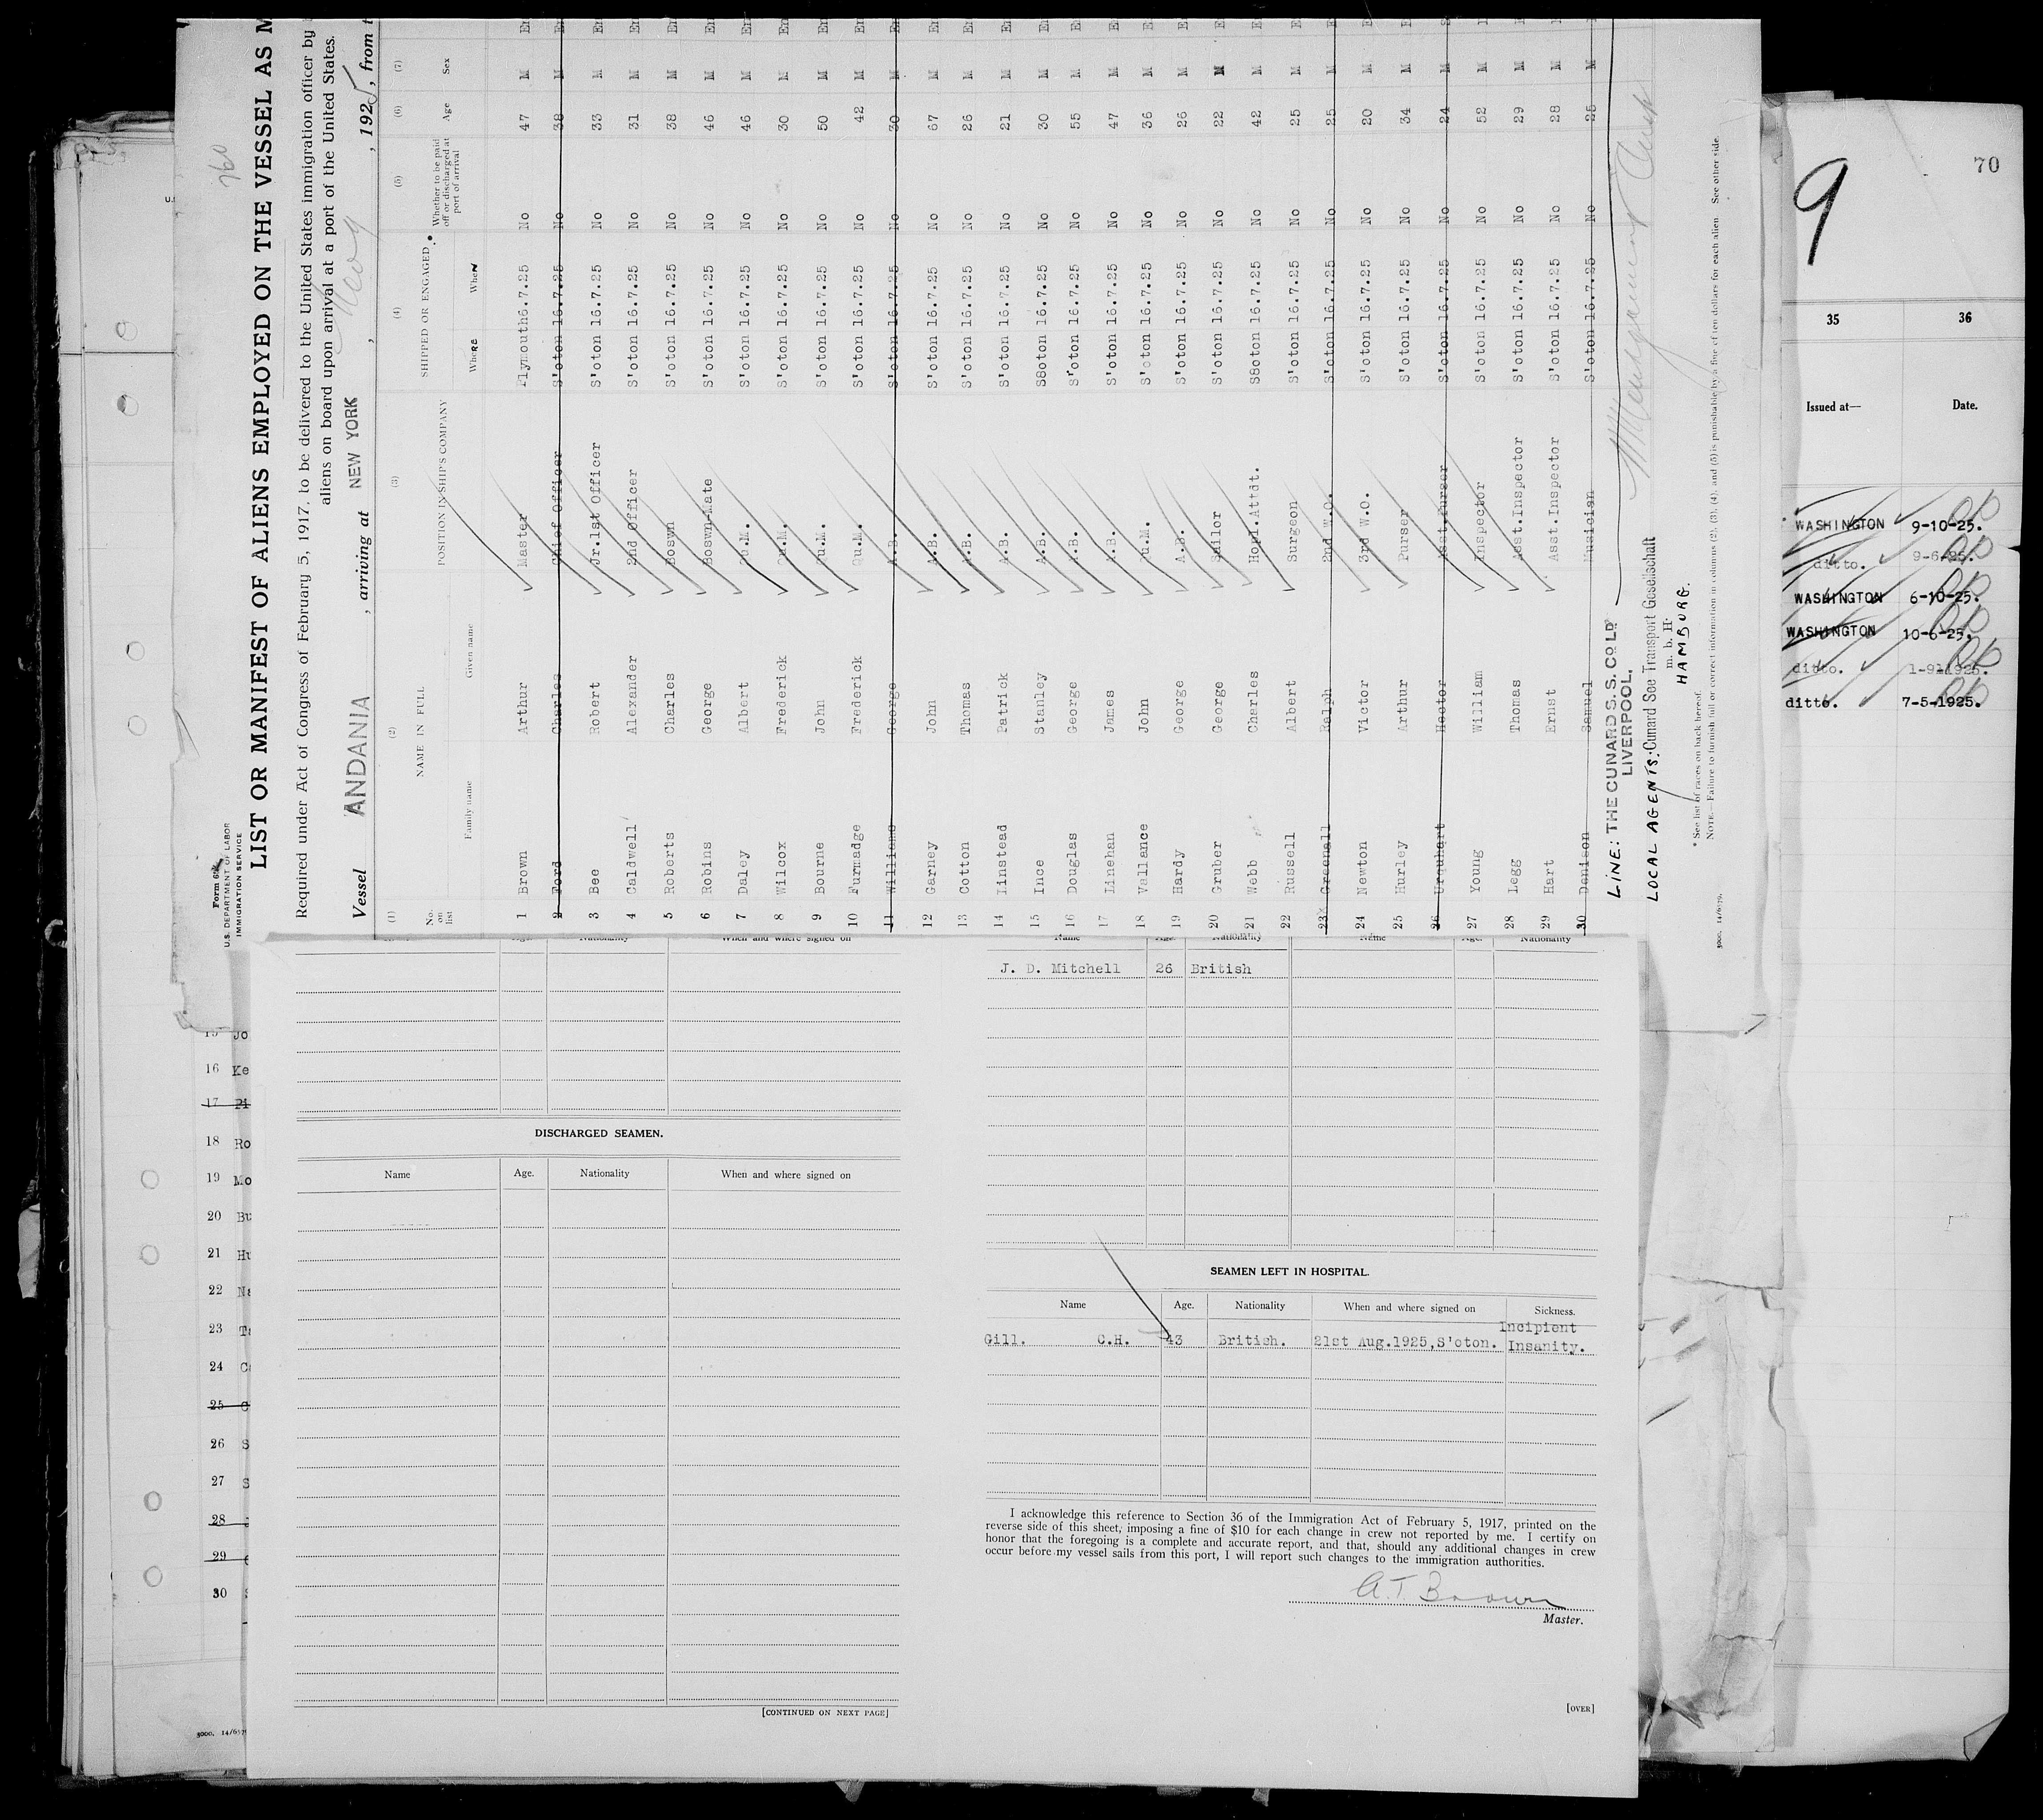 Form 689
U.S. DEPARTMENT OF LABOR
IMMIGRATION SERVICE
760
LIST OR MANIFEST OF ALIENS EMPLOYED ON THE VESSEL AS M
Required under Act of Congress of February 5, 1917, to be delivered to the United States immigration officer by
aliens on board upon arrival at a port of the United States.
Vessel ANDANIA , arriving at NEW YORK , , 1925, from t
(1) (2) (3) (4) (5) (6) (7)
No. on list NAME IN FULL POSITION IN SHIP'S COMPANY SHIPPED OR ENGAGED Whether to be paid off or discharged at port of arrival Age Sex
Family name Given name WheRE WheN
1 Brown Arthur Master Plymouth6.7.25 No 47 M En
2 Ford Charles Chief Officer S'oton 16.7.25 No 38 M En
3 Bee Robert Jr.1st Officer S'oton 16.7.25 No 33 M En
4 Caldwell Alexander 2nd Officer S'oton 16.7.25 No 31 M En
5 Roberts Charles Boswn S'oton 16.7.25 No 38 M En
6 Robins George Boswn-Mate S'oton 16.7.25 No 46 M En
7 Daley Albert Qu.M. S'oton 16.7.25 No 46 M En
8 Wilcox Frederick Qu.M. S'oton 16.7.25 No 30 M En
9 Bourne John Qu.M. S'oton 16.7.25 No 50 M En
10 Furmadge Frederick Qu.M. S'oton 16.7.25 No 42 M En
11 Williams George A.B. S'oton 16.7.25 No 30 M En
12 Garney John A.B. S'oton 16.7.25 No 67 M En
13 Cotton Thomas A.B. S'oton 16.7.25 No 26 M En
14 Linstead Patrick A.B. S'oton 16.7.25 No 21 M En
15 Ince Stanley A.B. S8oton 16.7.25 No 30 M En
16 Douglas George A.B. S'oton 16.7.25 No 55 M En
17 Linehan James A.B. S'oton 16.7.25 No 47 M En
18 Vallance John Qu.M. S'oton 16.7.25 No 36 M En
19 Hardy George A.B. S'oton 16.7.25 No 26 M En
20 Gruber George Sailor S'oton 16.7.25 No 22 M En
21 Webb Charles Hopl.Attdt. S8oton 16.7.25 No 42 M En
22 Russell Albert Surgeon S'oton 16.7.25 No 25 M E
23 Greenall Ralph 2nd W.O. S'oton 16.7.25 No 25 M E
24 Newton Victor 3rd W.O. S'oton 16.7.25 No 20 M E
25 Hurley Arthur Purser S'oton 16.7.25 No 34 M E
26 Urquhart Hector Asst.Purser S'oton 16.7.25 No 24 M S
27 Young William Inspector S'oton 16.7.25 No 52 M
28 Legg Thomas Asst.Inspector S'oton 16.7.25 No 29 M
29 Hart Ernst Asst.Inspector S'oton 16.7.25 No 28 M
30 Denison Samuel Musician S'oton 16.7.25 No 25 M
LINE: THE CUNARD S. S. Co LD
LIVERPOOL.
LOCAL AGENTS: Cunard See Transport Gesellschaft
m. b. H.
HAMBURG.
* See list of races on back hereof.
NOTE.—Failure to furnish full or correct information in columns (2), (3), (4), and (5) is punishable by a fine of ten dollars for each alien. See other side.
5000. 14/6579.
9
70
35 36
Issued at— Date.
WASHINGTON 9-10-25.
ditto. 9-6-25.
WASHINGTON 6-10-25.
WASHINGTON 10-6-25.
ditto. 1-91-1925.
ditto. 7-5-1925.
15 Jo
16 Ke
17 Pi
18 Ro
19 Mo
20 Bu
21 Hu
22 Na
23 Ta
24 C
25 C
26 S
27 S
28
29
30
5000. 14/6579
Age. Nationality When and where signed on
DISCHARGED SEAMEN.
Name Age. Nationality When and where signed on
[CONTINUED ON NEXT PAGE]
Name Age. Nationality Name Age. Nationality
J. D. Mitchell 26 British
SEAMEN LEFT IN HOSPITAL.
Name Age. Nationality When and where signed on Sickness.
Gill. C.H. 43 British. 21st Aug.1925,S'oton. Incipient
Insanity.
I acknowledge this reference to Section 36 of the Immigration Act of February 5, 1917, printed on the
reverse side of this sheet, imposing a fine of $10 for each change in crew not reported by me. I certify on
honor that the foregoing is a complete and accurate report, and that, should any additional changes in crew
occur before my vessel sails from this port, I will report such changes to the immigration authorities.
A.T. Brown
Master.
[OVER]